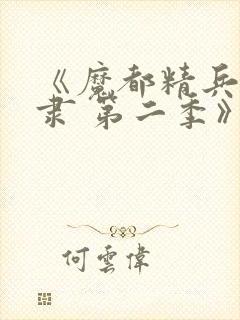 《魔都精兵
隶 第二季》
何雲偉